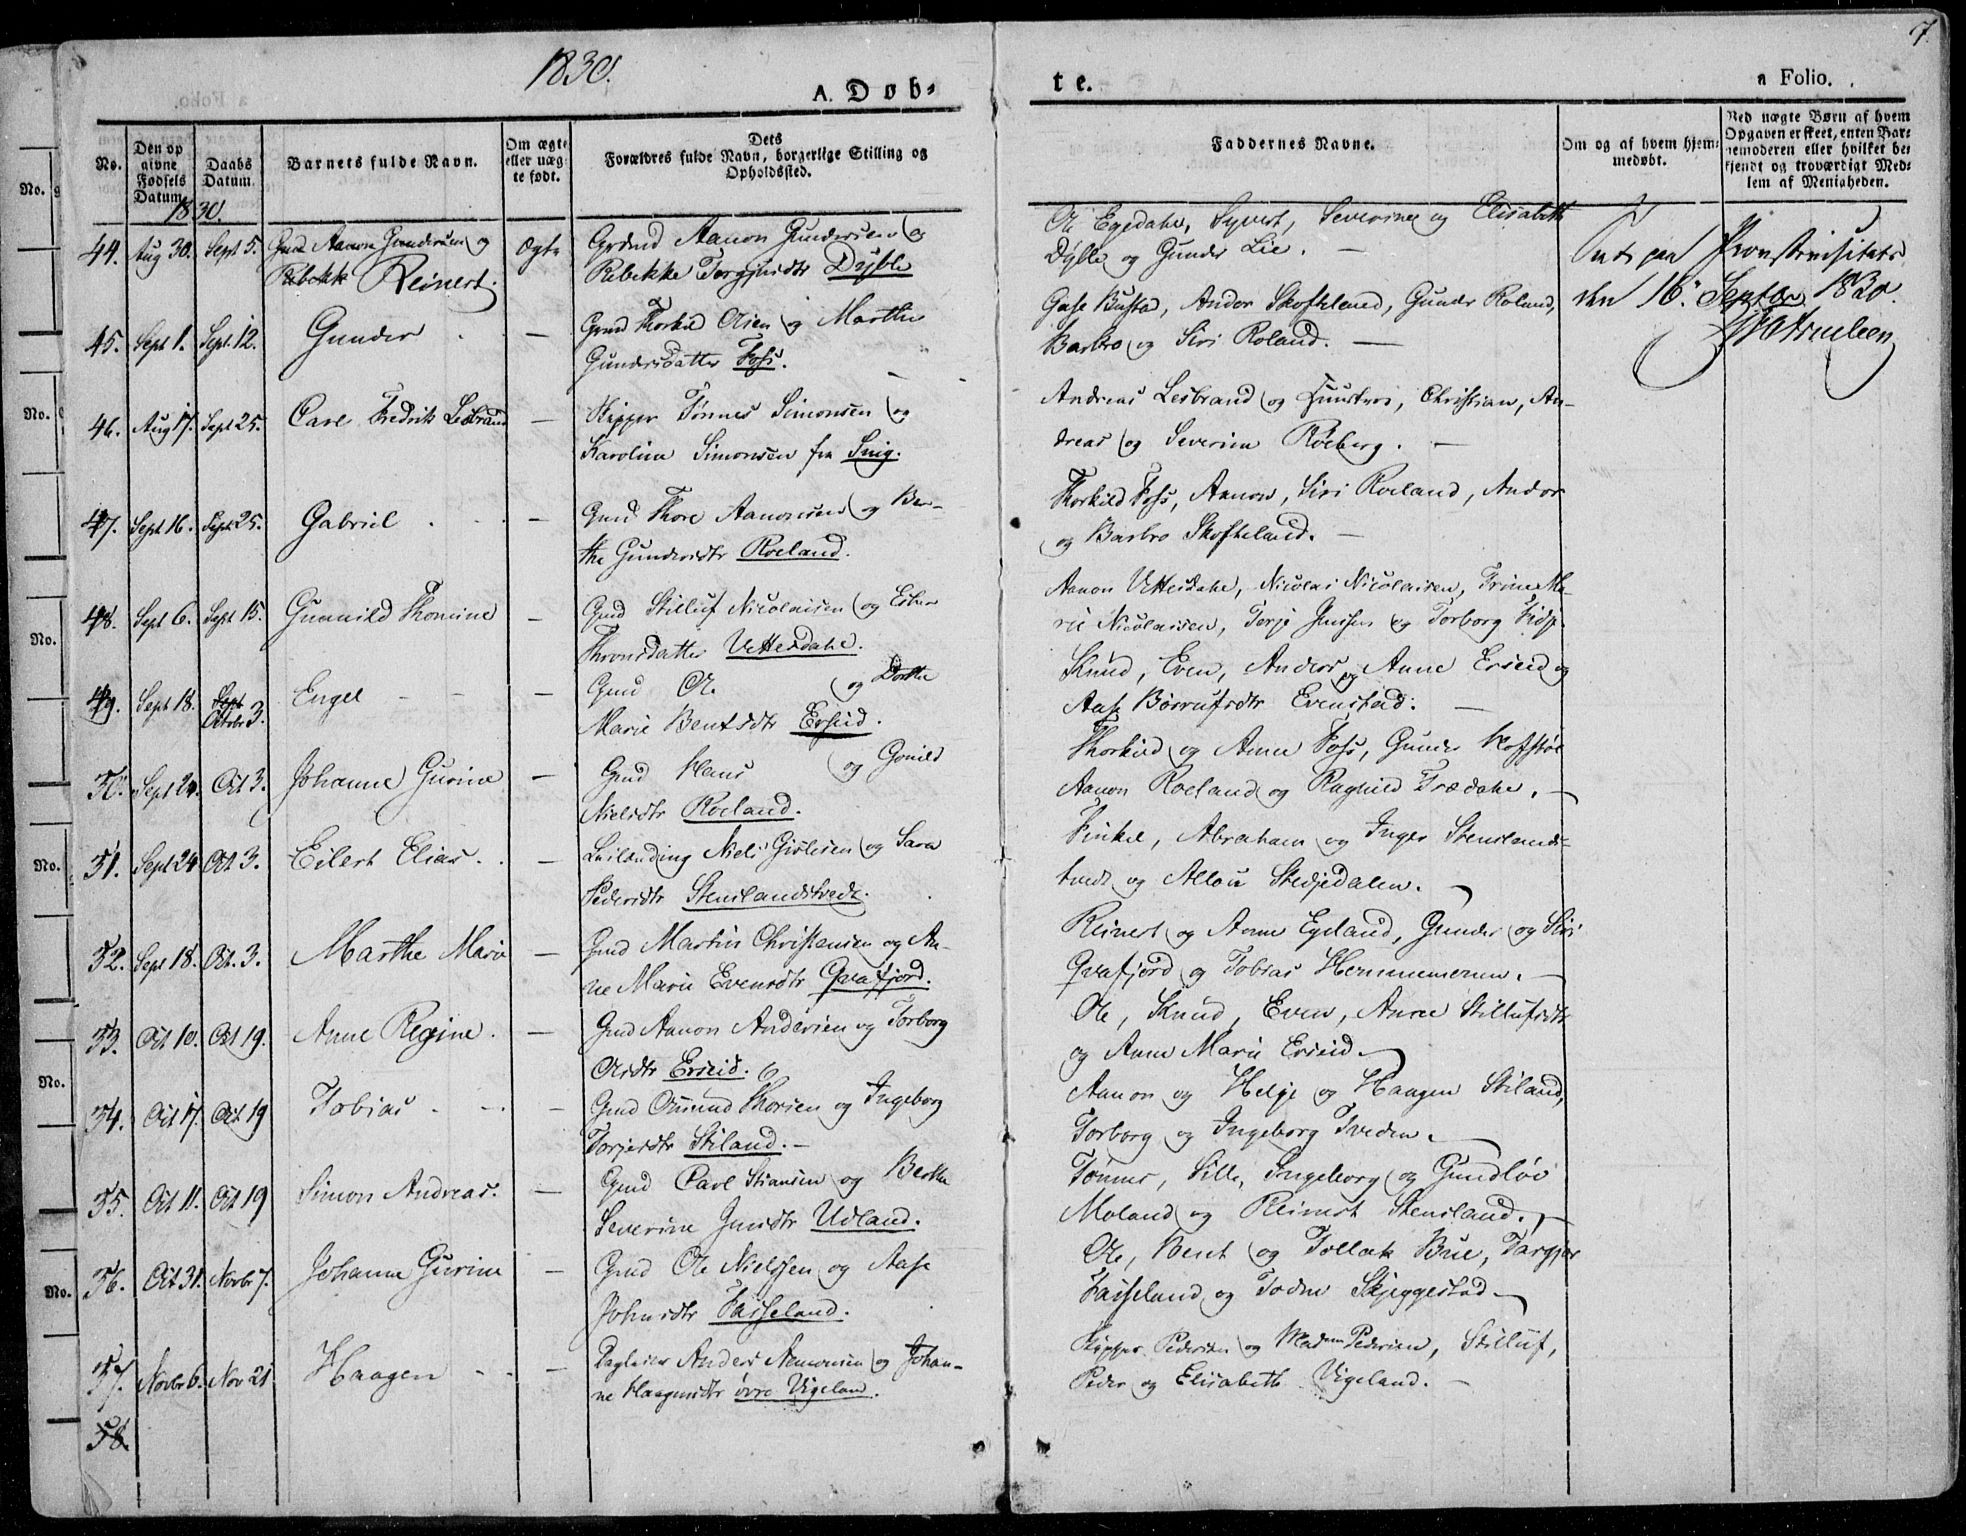 1830.
7.
A. Døb-
te.
a Folio.
No.
Den op
givne
Fødsels
Datum.
Daabs
Datum.
Barnets fulde Navn.
Om ægte
eller uæg-
te født.
Dets
Forældres fulde Navn, borgerlige Stilling og
Opholdssted.
Faddernes Navne.
Om og af hvem hjem-
medøbt.
Ved uægte Børn af hvem
Opgaven er skeet, enten Bar-
nemoderen eller hvilket be-
kjendt og troværdigt Med-
lem af Menigheden.
1830.
44. Aug 30. Sept 5. Gmd Aanon Gundersen og
Rebekk Reinert.
Ægte
Grdmd Aanon Gundersen og
Rebekke Torgjusdtr Dyble
Ole Egedahe, Syvert, Severine og Elisabeth
Dÿble og Gunder Lie. —
den 16. Septbr 1830.
45. Sept 1. Sept. 12. Gunder — Gmd Thorkild Olsen og Marthe
Gundersdatter Foss.
Gase Bustad, Andor Skofteland, Gunder Roland,
Barbro og Siri Roland. —
46. Aug 17. Sept 25. Carl Fredrik Lesbrand — Skipper Tønnes Simonsen og
Karoline Simonsen fra Snig.
Andreas Lesbrand og Huustroe, Christian, An-
dreas og Severine Röeberg. —
47. Sept 16. Sept 25. Gabriel — Gmd Thore Aanonsen og Ber-
the Gundersdtr Roeland.
Thorkild Foss, Aanon, Siri Roeland, Andor
og Barbro Skofteland. —
48. Sept 6. Sept 15. Gunnild Thomine — Gmd Stilluf Nicolaisen og
Thronsdatter Uttesdahe.
Aanon Uttesdahe, Nicolai Nicolaisen, Trine Ma-
rie Nicolaisen, Terje Jenssen og Torborg
49. Sept 18. Sept
Octobr 3.
Engel — Gmd Ole og Dorthe
Marie Bentsdtr Erseid.
Knud, Even, Anders og Anne Erseid og
Aase Börrufsdtr Evenstad. —
50. Sept 24. Oct 3. Johanne Gurine — Gmd Hans og Gonild
Nielsdtr Roeland.
Thorkild og Anne Foss, Gunder
Aanon Roeland og Raghild Trædahe. —
51. Sept 24 Oct 3. Eilert Elias. — Niels Gislesen og Sara
Pedersdtr Stenslandstvedt.
Finkel, Abraham og Inger Stenslands-
tvedt og Stedjedalen.
52. Sept 18. Oct. 3. Marthe Marie — Gmd Martin Christensen og An-
ne Marie Evensdtr Qvafjord.
Reinert og Anne Egeland, Gunder og Siri
Qvafjord og Tobias
53. Oct 10. Oct 19. Anne Regine. — Gmd Aanon Andersen og Torborg
Olsdtr Erseid.
Ole, Knud, Even, Anne Stillufsdtr
og Anne Marie Erseid.
54. Oct 17. Oct 19 Tobias — Gmd Omund Thorsen og Ingeborg
Torjersdtr Stiland. —
Aanon og Helje og Haagen Stiland,
Torborg og Ingeborg Tveden.
55. Oct 11. Oct 19 Simon Andreas. — Gmd Carl Stiansen og Berthe
Severine Jensdtr Udland.
Tønnes, Sille, Ingeborg og Gundlöv
Moland og Reinert Stensland.
56. Oct 31. Novbr 7. Johanne Gurine — Gmd Ole Nielssen og Aase
Johnsdtr Fasseland.
Ole, Bent og Tollak Bue, Torgjer
Fasseland og Todne Skjeggestad
57. Novbr 6. Nov 21 Haagen — Anders Aemonsen og Johan-
ne Haagensdtr övre Vigeland.
Skipper Pedersen og Madm Pedersen, Stilluf,
Peder og Elisabeth Vigeland. —
58.